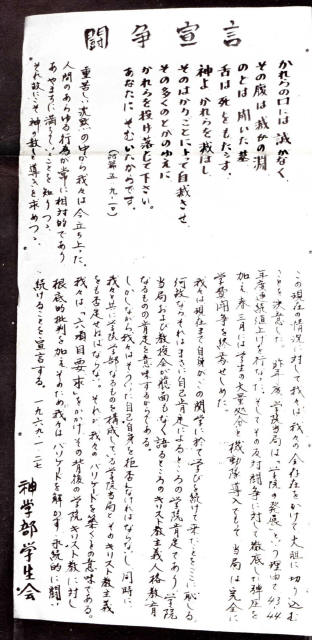 闘争宣言
かれらの口には 誠がなく、
その腹は 滅びの淵
のどは 開いた墓
舌は 死をもたらす。
神よ かれらを裁はし
そのはかりごとによって自裁させ、
その多くのとがのゆえに
かれらを投け落して下さい。
あなたに そむいたからです。
(詩篇 五 九〜一〇)
重苦しい沈黙の中から我々は今立ち上った。
人間のあらゆる行為が常に相対的であり
あやまちに満ちていることを知りつつ、
それ故にこそ神の教えと導きを求めつつ、
この現在の情況に対して我々は、我々の全存在をかけて大胆に切り込む
ことを決意した。昨年度、学院当局は「学院の発展」という理由で43、44
年度連続値上げを行なった。そしてその反対闘争に対して徹底した弾圧を
加え、春三月には学生の大量処分と機動隊導入でもって当局は完全に
学費闘争を終焉せしめた。
我々は現在まで自身がこの関学に於て学び続けて来たことを恥じる。
何故ならそれはまさに自己肯定によるところの学院肯定であり、学院
当局および教授会が臆面もなく語るところのキリスト教主義人格教育
なるものの肯定を意味するからである。
しかしながら我々はそうした自己自身を拒否しなければならない。同時に
我々は共に学院、学部なるものを構成している学院当局、そのキリスト教主義
をも否定せねばならない。それが我々のバリケードを築く事の意味である。
我々は、「六項目要求」をかかげ、その背後の学院、キリスト教に対し
根底的批判を加え、そのため我々はバリケードを解かず永続的に闘い
続けることを宣言する。一九六九 一 二七
神学部学生会